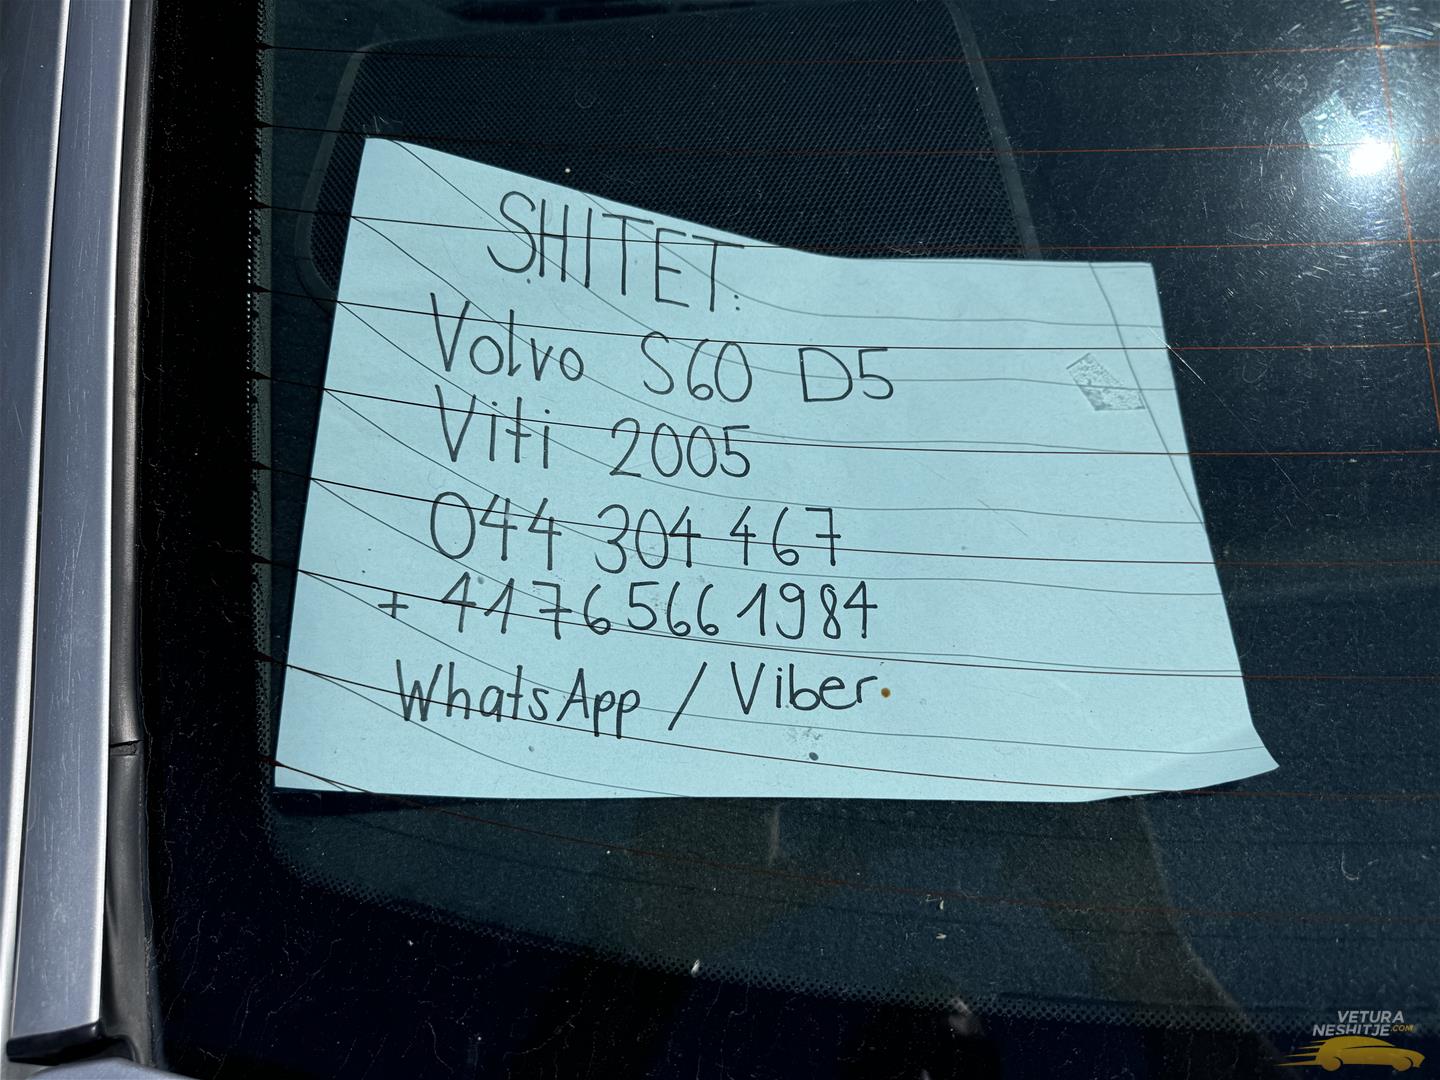 SHITET:
Volvo S60 D5
Viti 2005
044 304 467
+ 41 76 566 1984
WhatsApp / Viber
VETURA
NESHITJE.COM